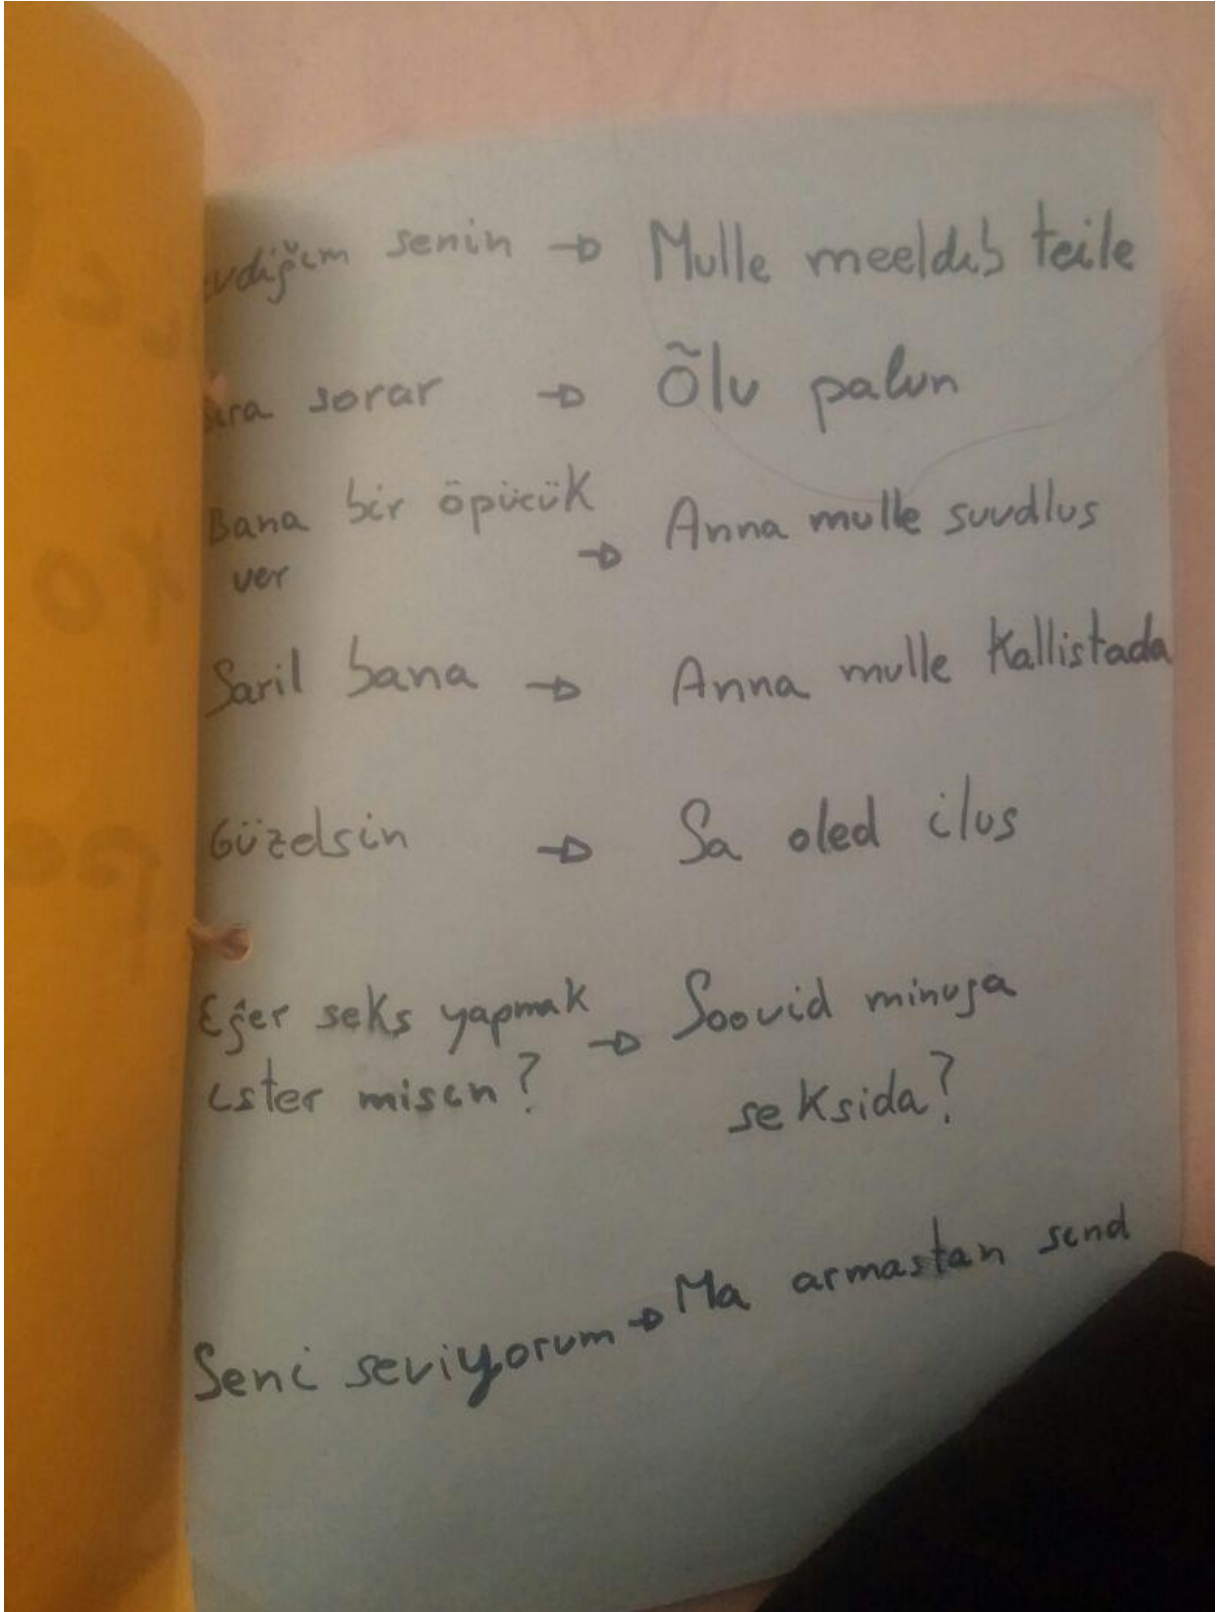 senin → Mulle meeldib teile
sorar → Õlu palun
Bana bir öpücük → Anna mulle suudlus
ver
Saril bana → Anna mulle Kallistada
Güzelsin → Sa oled ilus
Eğer seks yapmak → Soovid minuga
ister misin? seksida?
Seni seviyorum → Ma armastan sind